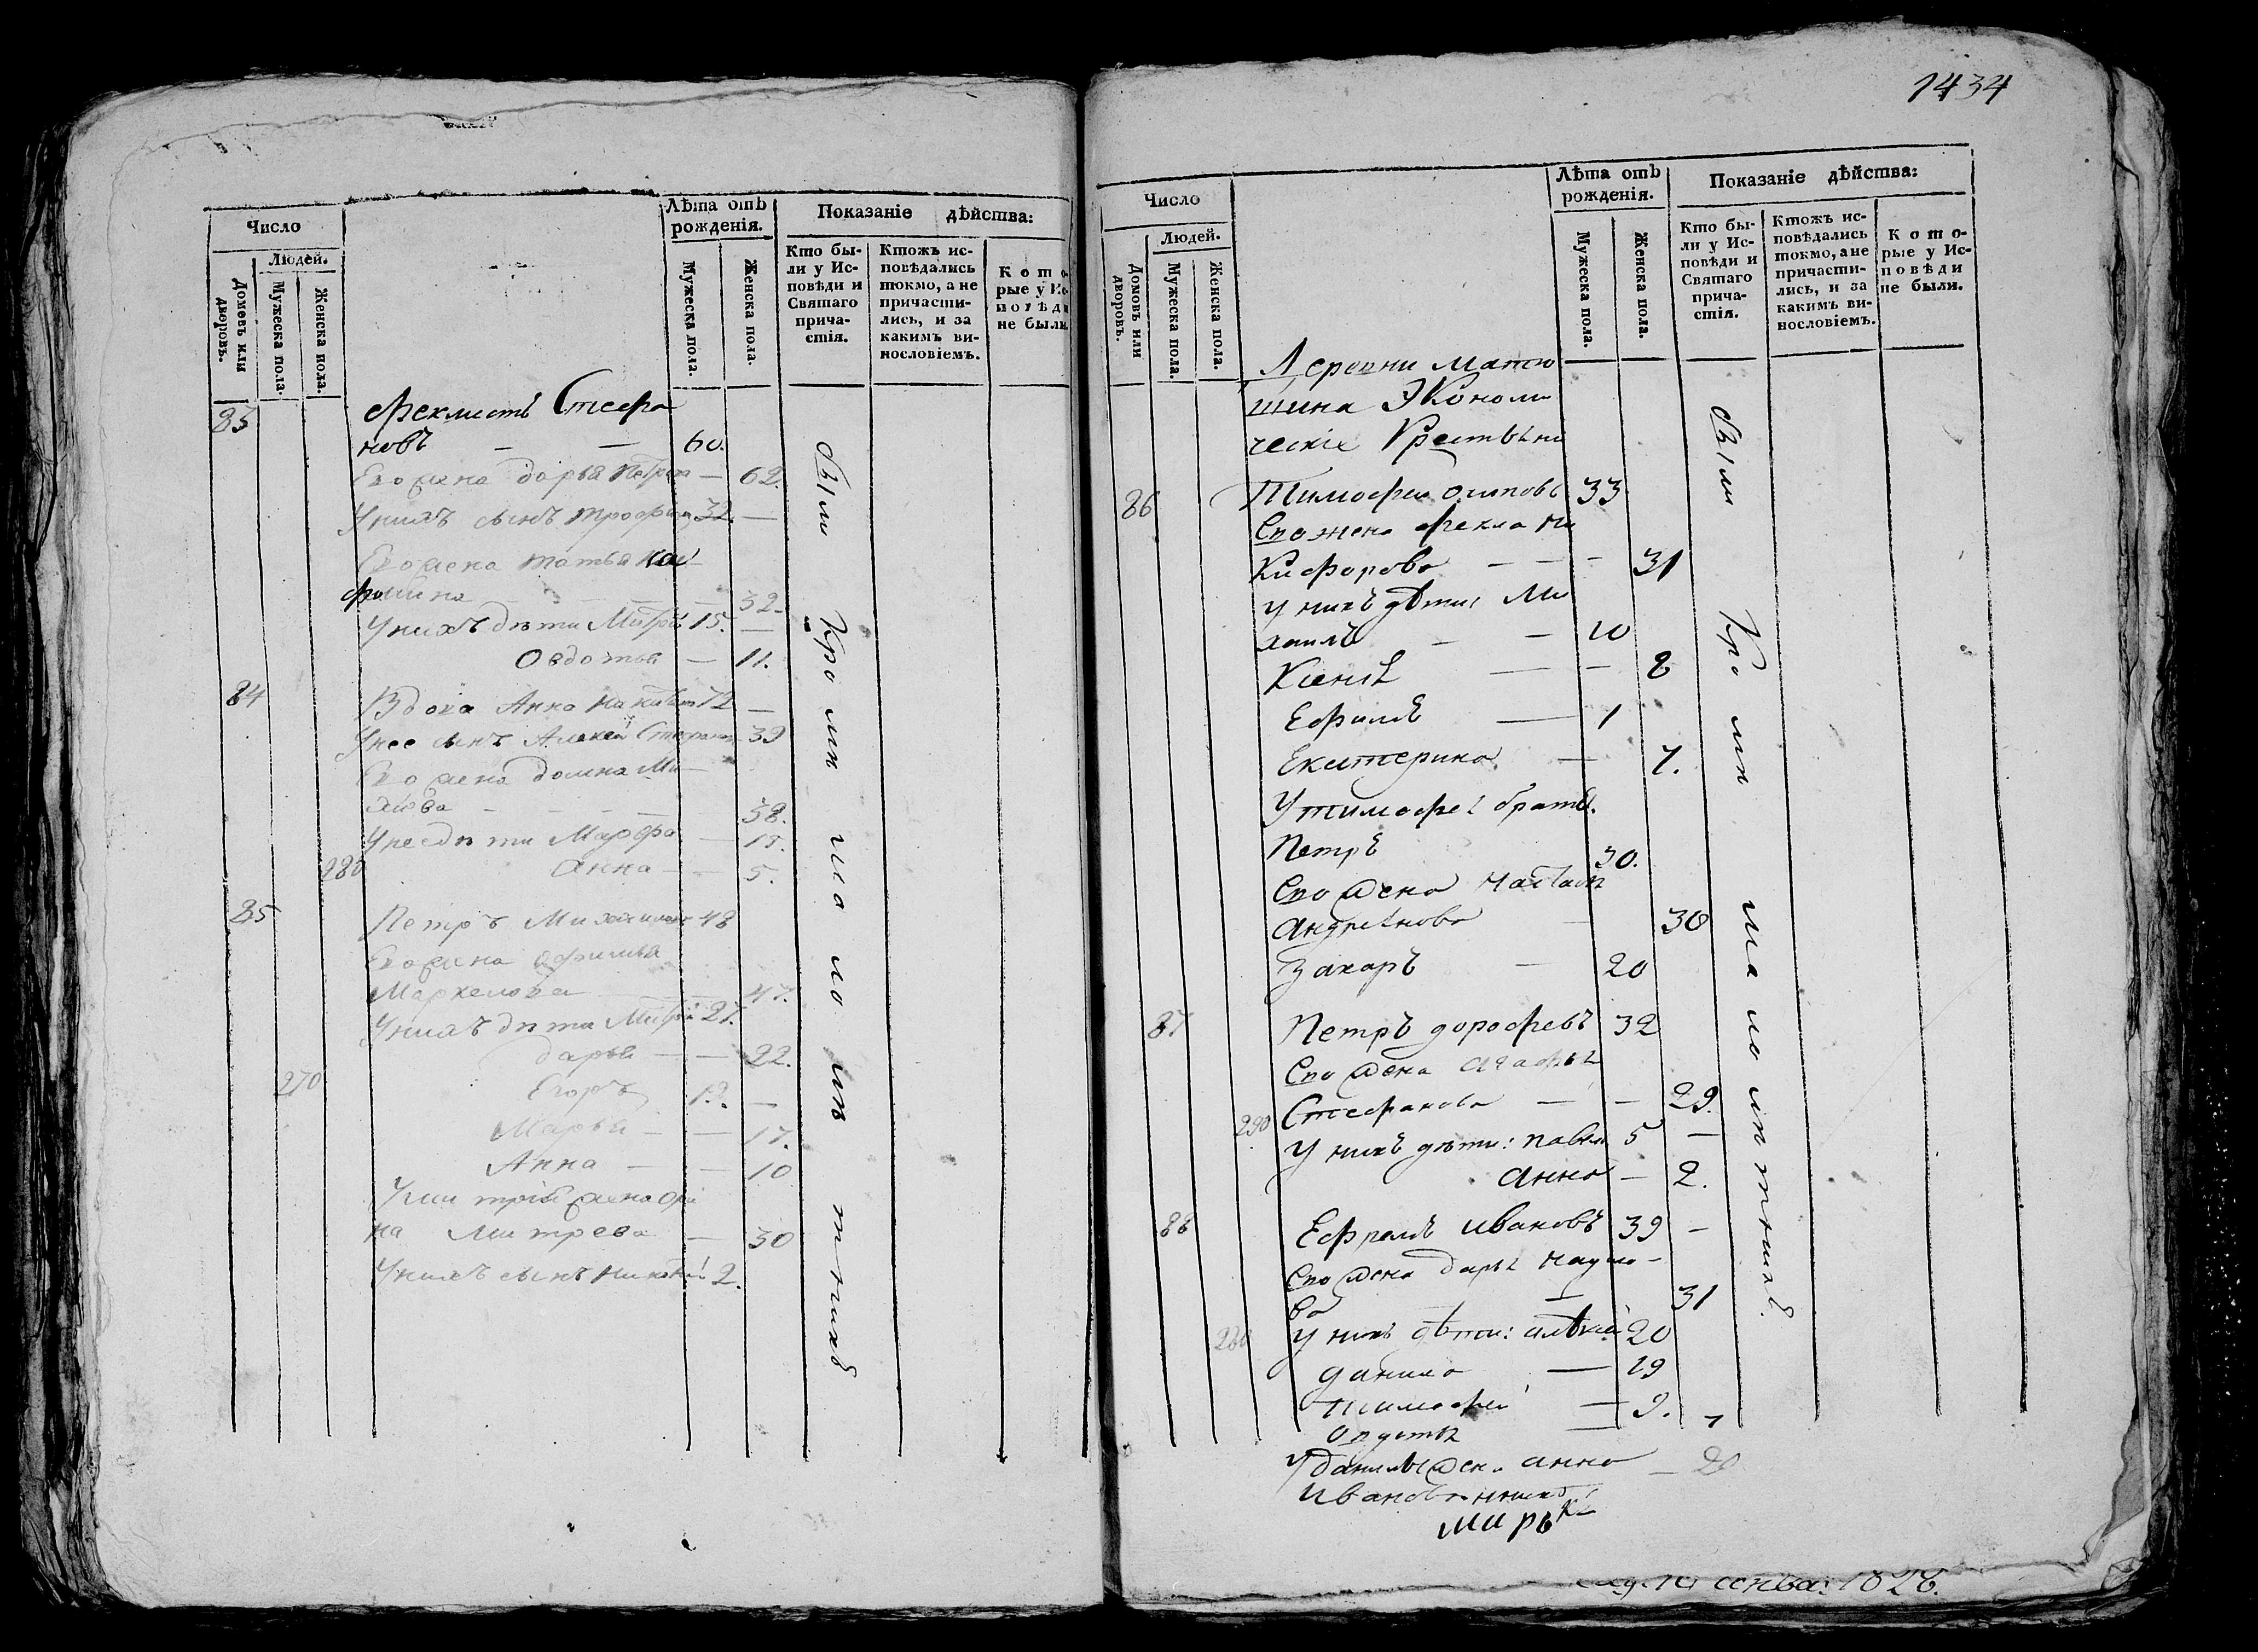 Число
Людей.
Домовъ или дворовъ.
Мужеска пола.
Женска пола.
Лѣта отъ рожденія.
Мужеска пола.
Женска пола.
Показаніе дѣйства:
Кто бы-
ли у Ис-
повѣди и
Святаго
прича-
стія.
Ктожъ ис-
повѣдались
токмо, а не
причасти-
лись, и за
какимъ ви-
нословіемъ.
Кото-
рые у Ис-
повѣди
не были.
83 Феклистъ Стефа
новъ — — 60.
Его жена дарья Петрова — 62.
У нихъ сынъ трофим 32. —
Его жена татьяна
фомина — 32.
У нихъ дѣти Митрій 15. —
Овдотья — 11.
84 Вдова Анна 72 —
У нее сынъ Алексей Стефанов 39
Его жена домна Ми
— — — 38.
У нее дѣти Марфа — 15.
280 Анна — — 5.
85 Петръ Михаиловъ 48
Его жена Офимья
Маркелова — 47.
У нихъ дѣти Митрій 27.
дарья — — 22.
270 Егоръ 19. —
Марья — — 17.
Анна — — 10
У митрія жена Ори
на Митрева — 30
У нихъ сынъ 2.
были Кромѣ малолѣтнихъ
1434
Число
Людей.
Домовъ или дворовъ.
Мужеска пола.
Женска пола.
Лѣта отъ
рожденія.
Мужеска пола.
Женска пола.
Показаніе дѣйства:
Кто бы-
ли у Ис-
повѣди и
Святаго
прича-
стія.
Ктожъ ис-
повѣдались
токмо, а не
причасти-
лись, и за
какимъ ви-
нословіемъ.
Кото-
рые у Ис-
повѣди
не были.
Деревни Матю
шина Экономи
ческіе Крестьяни
86 Тимофеи осиповъ 33
Его жена фекла Ни
кифорова — — — 31
у нихъ дѣти: Ми
хаилъ — — 10
Ксенѣ — — 8
Ефимъ — 1
Екатерина — 7.
У тимофеѣ братъ.
Петръ 30.
Его жена Настасѣ
андреѣнова — 30
Захаръ — 20
87 Петръ дорофеевъ 32
Его жена агафьѣ
290 Стефанова — — 29.
у нихъ дѣти: павелъ 5 —
анна — 2.
88 Ефремъ ивановъ 39 —
Его жена дарьѣ наумо-
ва — 31
280 у нихъ дѣти: алѣксій 20
данило — 19
тимофеи — 9.
овдотьѣ — 7
У данилы жена анна — 20
иванова
были Кромѣ малолѣтнихъ.
1826.